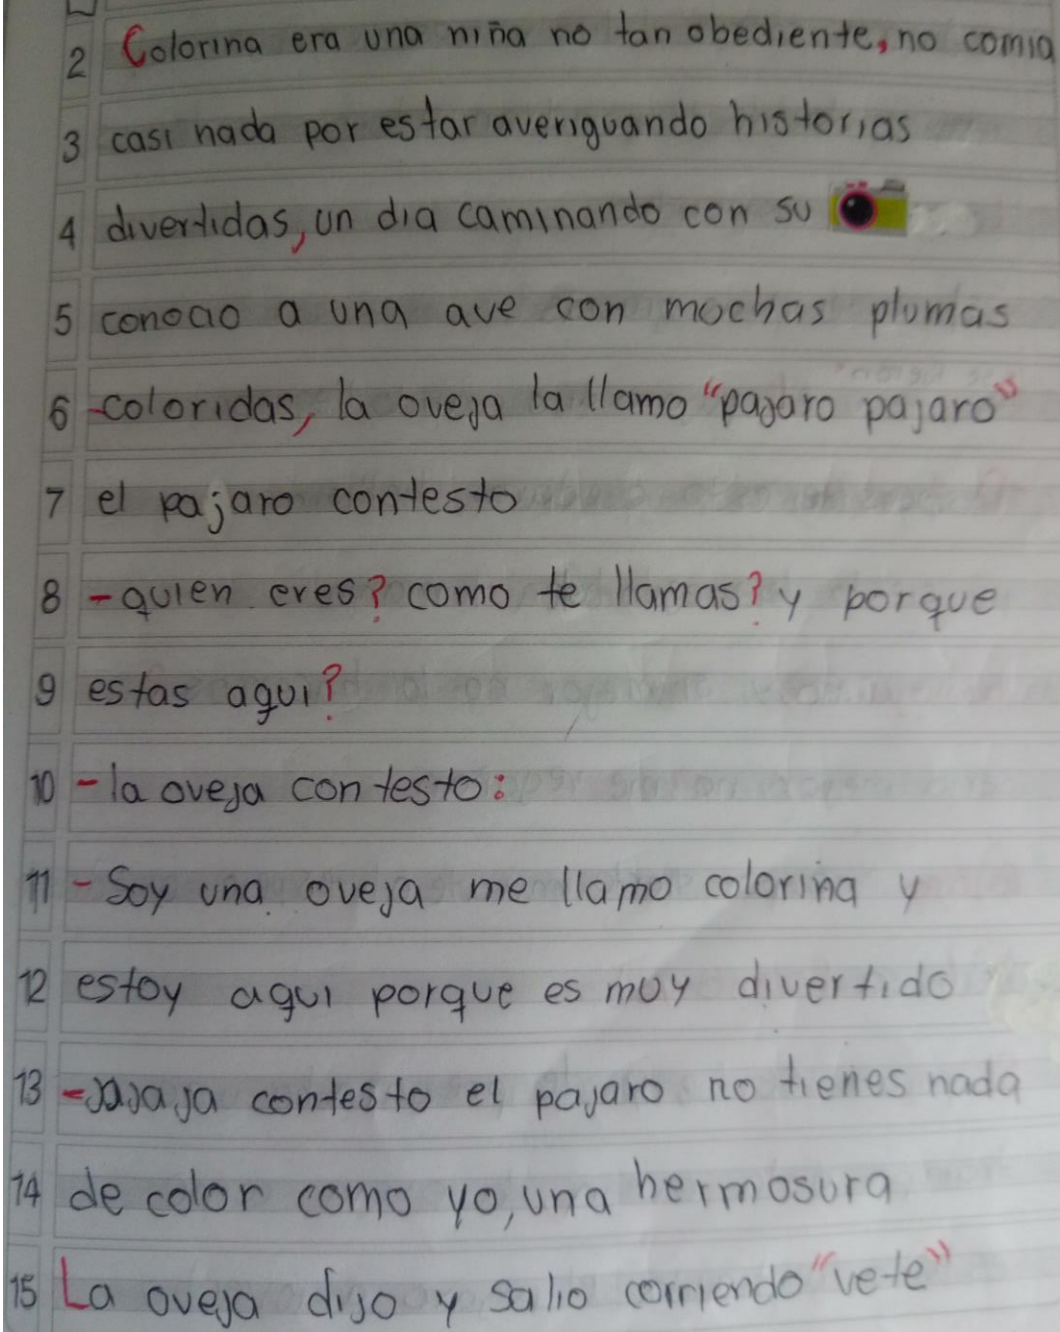 2 Colorina era una niña no tan obediente, no comia
3 casi nada por estar averiguando historias
4 divertidas, un dia caminando con su
5 conocio a una ave con muchas plumas
6 -coloridas, la oveja la llamo "pajaro pajaro"
7 el pajaro contesto
8 -quien eres? como te llamas? y porque
9 estas aqui?
10 -la oveja contesto:
11 -Soy una oveja me llamo colorina y
12 estoy aqui porque es muy divertido
13 -jajaja contesto el pajaro no tienes nada
14 de color como yo, una hermosura
15 La oveja dijo y salio corriendo "vete"